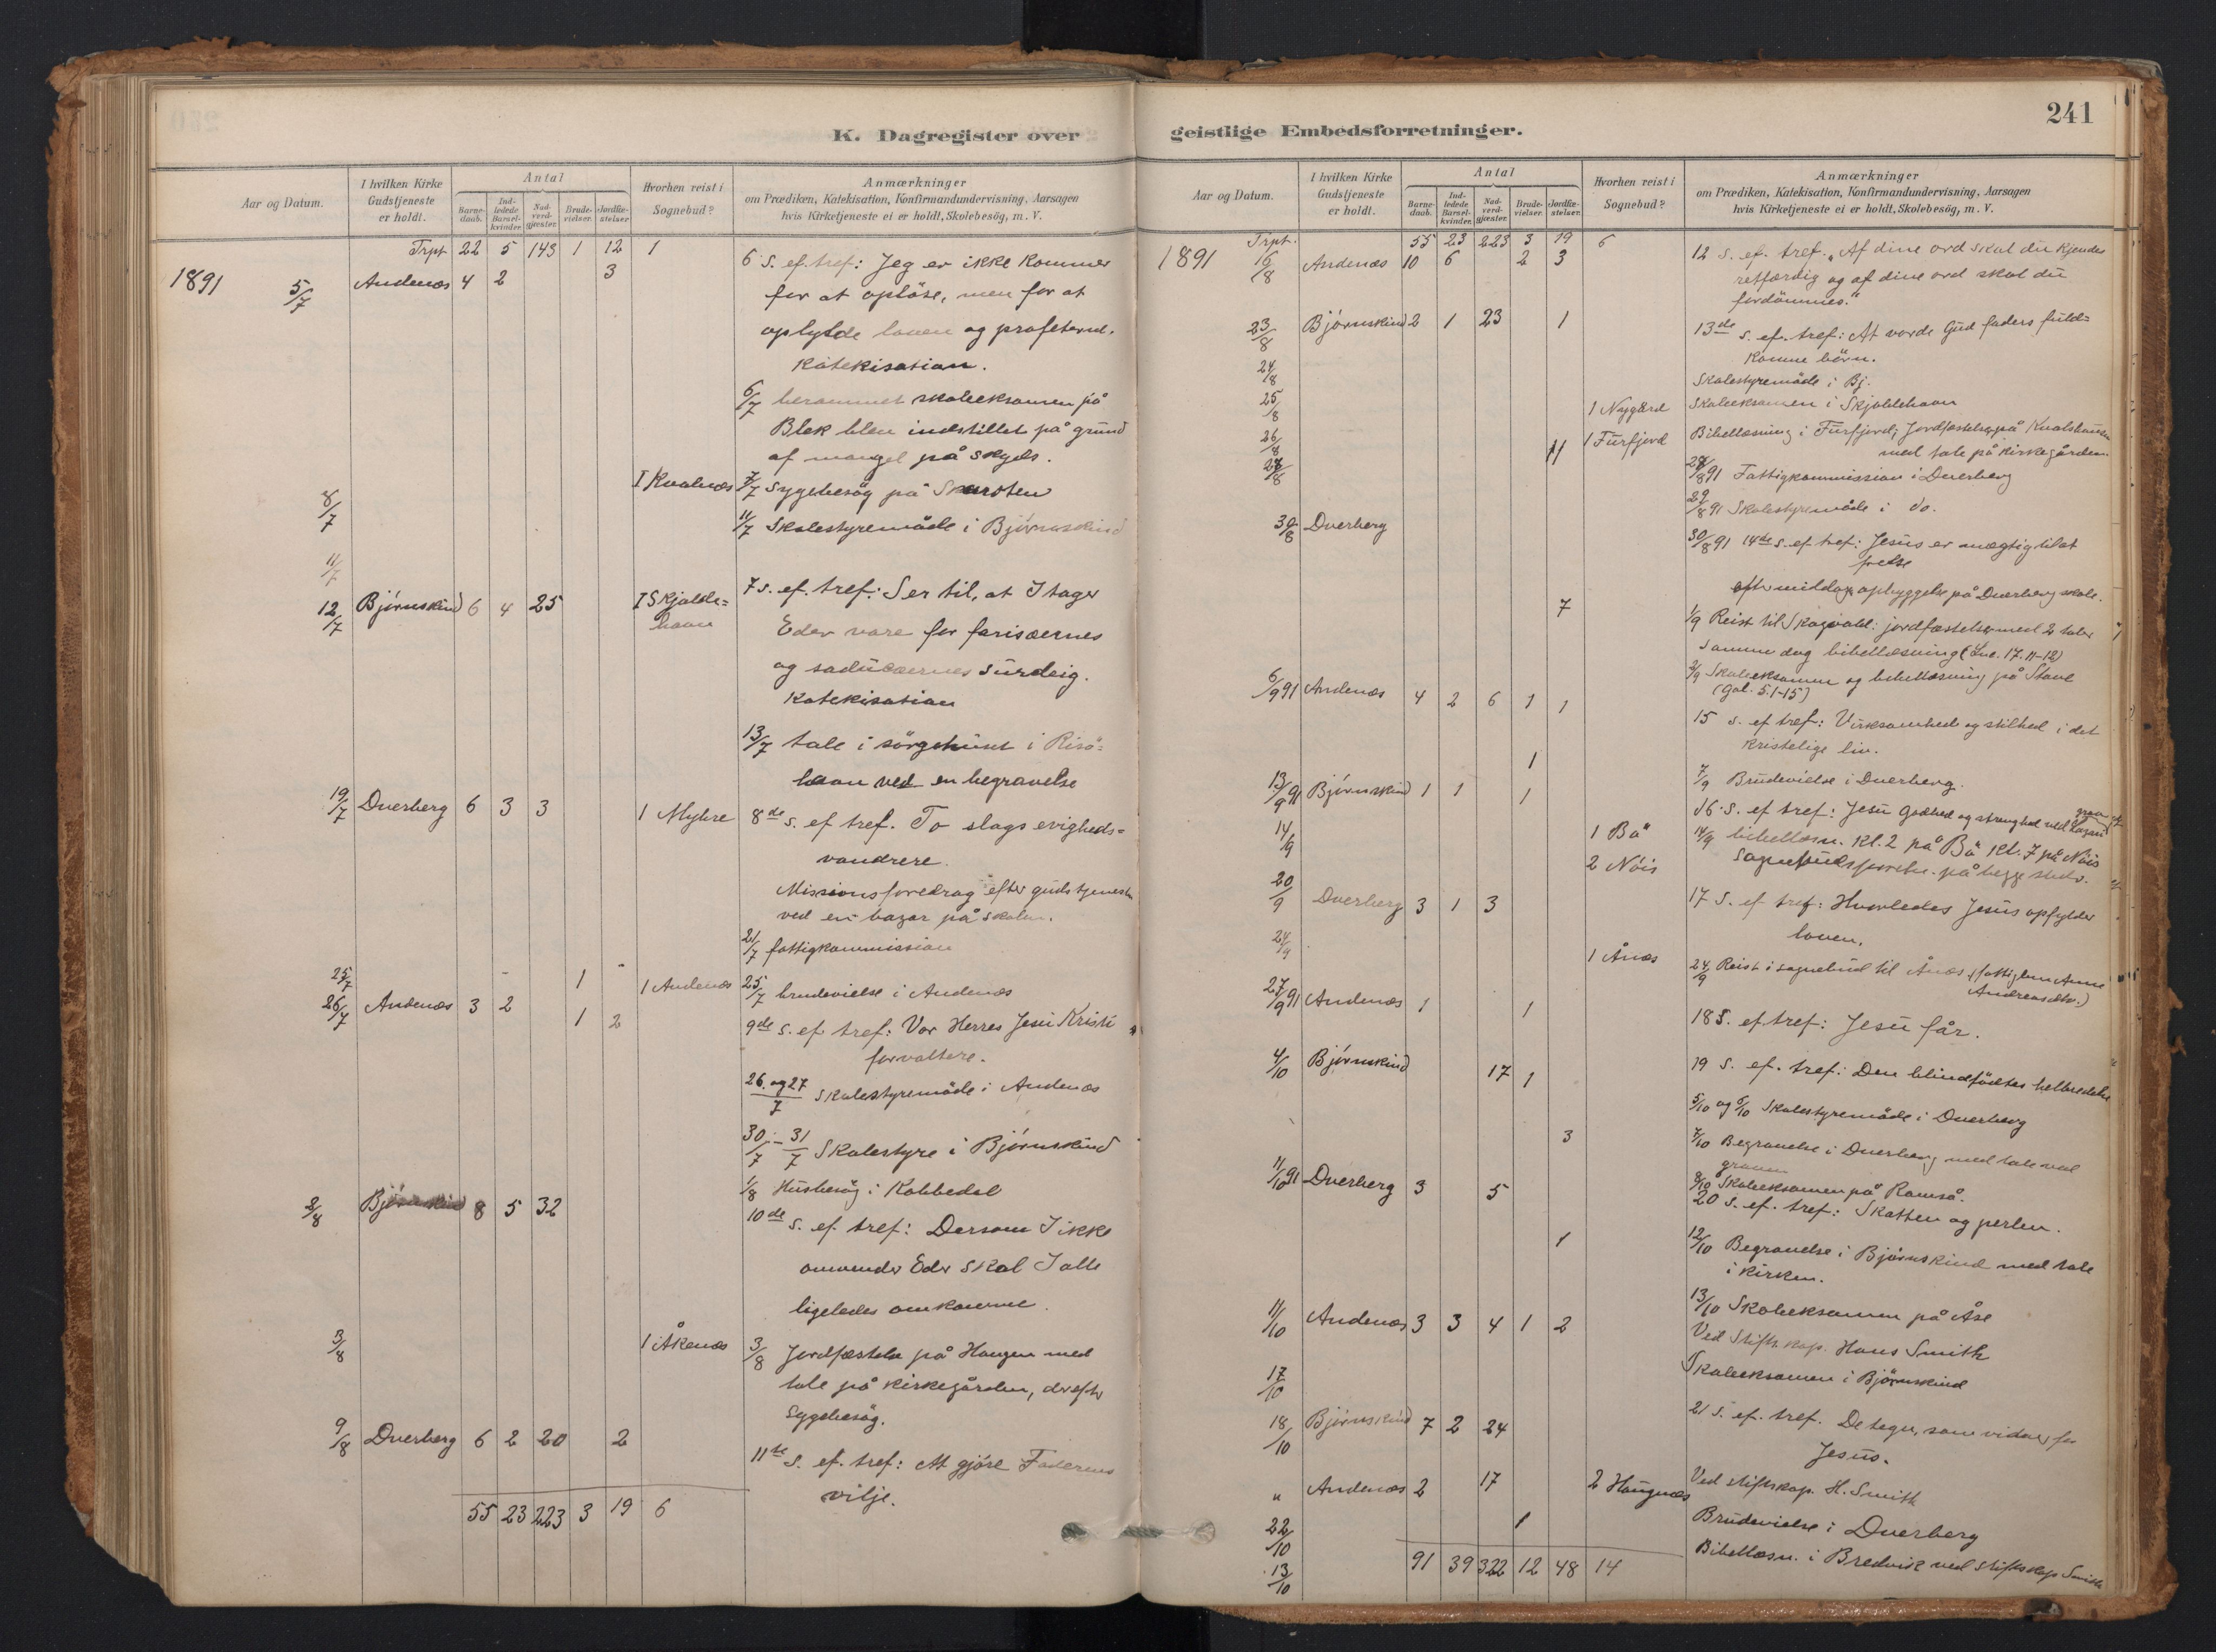 K. Dagregister over
Aar og Datum.
I hvilken Kirke Gudstjeneste er holdt.
Antal
Barne-daab.
Ind-ledede Barsel-kvinder.
Nad-verd-gjæster.
Brude-vielser.
Jordfæ-stelser.
Hvorhen reist i Sognebud?
Anmærkninger
om Prædiken, Katekisation, Konfirmandundervisning, Aarsagen
hvis Kirketjeneste ei er holdt, Skolebesög, m. V.
Trpt 22 5 143 1 12 1
1891 5/7 Andenæs 4 2 3 6 s. ef. tref: Jeg er ikke kommer
for at oplöse, men for at
opfylde loven og profeterne.
Katekisation.
6/7 berammet skoleeksamen på
Blek blev indstillet på grund
af mangel på skyds.
8/7 1 Kvalnæs 7/7 Sygebesög på Skarsten
11/7 11/7 Skolestyremöde i Björnskind
12/7 Björnskind 6 4 25 1 Skjolde=
havn 7 s. ef. tref: Ser til, at I tager
Eder vare for farisæernes
og saducæernes surdeig.
Katekisation
13/7 tale i sörgehuset i Risö=
havn ved en begravelse
19/7 Dverberg 6 3 3 1 Myhre 8de s. ef tref. To slags evigheds=
vandrere.
Missionsforedrag efter gudstjenesten
ved en bazar på skolen.
21/7 fattigkommission
25/7 1 1 Andenæs 25/7 brudevielse i Andenæs
26/7 Andenæs 3 2 1 2 9de s. ef tref: Vor Herres Jesu Kristi
forvaltere.
26. og 27/7 skolestyremöde i Andenæs
30/7 - 31/7 Skolestyre i Björnskind
1/8 Husbesög i Kobbedal
2/8 Björnskind 8 5 32 10de s. ef tref: Dersom I ikke
omvender Eder skal I alle
ligeledes omkomme.
3/8 1 Åkenæs 3/8 Jordfæstelse på Haugen med
tale på kirkegården, derefter
Sygebesög.
9/8 Dverberg 6 2 20 2 11te s. ef. tref: At gjöre Faderens
vilje.
55 23 223 3 19 6
geistlige Embedsforretninger.
241
Aar og Datum.
I hvilken Kirke Gudstjeneste er holdt.
Antal
Barne-daab.
Ind-ledede Barsel-kvinder.
Nad-verd-gjæster.
Brude-vielser.
Jordfæ-stelser.
Hvorhen reist i Sognebud?
Anmærkninger
om Prædiken, Katekisation, Konfirmandundervisning, Aarsagen
hvis Kirketjeneste ei er holdt, Skolebesög, m. V.
Trpt. 55 23 223 3 19 6
1891 16/8 Andenæs 10 6 2 3 12 s. ef. tref. "Af dine ord skal du kjendes
retfærdig og af dine ord skal du
fordömmes."
23/8 Björnskind 2 1 23 1 13de s. ef. tref: At vorde Gud faders fuld=
komne börn.
24/8 Skolestyremöde i Bj.
25/8 1 Nygård Skoleeksamen i Skjoldehavn
26/8 11 1 Furfjord Bibellæsning i Furfjord; Jordfæstelse på Kvalshausen
med tale på kirkegården.
28/8 28/8 91 Fattigkommission i Dverberg
29/8 91 Skolestyremöde i do.
30/8 Dverberg 30/8 91 14de s. ef tref: Jesus er mægtig til at
frelse
eftermiddag opbyggelse på Dverberg skole.
7 1/9 Reist til Skogvold: jordfæstelser med 2 taler
Samme dag bibellæsning (Luc. 17. 11-12)
2/9 Skoleeksamen og bibellæsning på Stave
(Gal. 5.1-15)
6/9 91 Andenæs 4 2 6 1 1 15 s. ef tref: Virksomhed og stilhed i det
kristelige liv.
1 7/9 Brudevielse i Dverberg.
13/9 91 Björnskind 1 1 1 16 s. ef tref: Jesu godhed og strenghed ved Lazari grav
14/9 1 Bö 14/9 bibellæsn. kl. 2 på Bö kl. 7 på Nöis
2 Nöis Sognebudsforretn. på begge steder.
20/9 Dverberg 3 1 3 17 S. ef tref: Hvorledes Jesus opfylder
loven.
24/9 1 Ånæs 24/9 Reist i sognebud til Ånæs (fattiglem Anne
Andreasdtr.)
27/9 91 Andenæs 1 1 18 S. ef tref: Jesu får.
4/10 Björnskind 17 1 19 S. ef. tref: Den blindfödtes helbredelse
5/10 og 6/10 Skolestyremöde i Dverberg
3 7/10 Begravelse i Dverberg med tale ved
graven
8/10 Skoleeksamen på Ramså.
11/10 91 Dverberg 3 5 20 s. ef. tref: Skatten og perlen.
1 12/10 Begravelse i Björnskind med tale
i kirken.
13/10 Skoleeksamen på Åse
11/10 Andenæs 3 3 4 1 2 Ved Stiftskap. Hans Smith
17/10 Skoleeksamen i Björnskind
18/10 Björnskind 7 2 24 21 S. ef. tref. De tegn, som vidner for
Jesus.
" Andenæs 2 17 2 Haugnæs Ved stiftskap. H. Smith
22/10 1 Brudevielse i Dverberg
13/10 Bibellæsn. i Bredvik ved stiftskap Smith
91 39 322 12 48 14